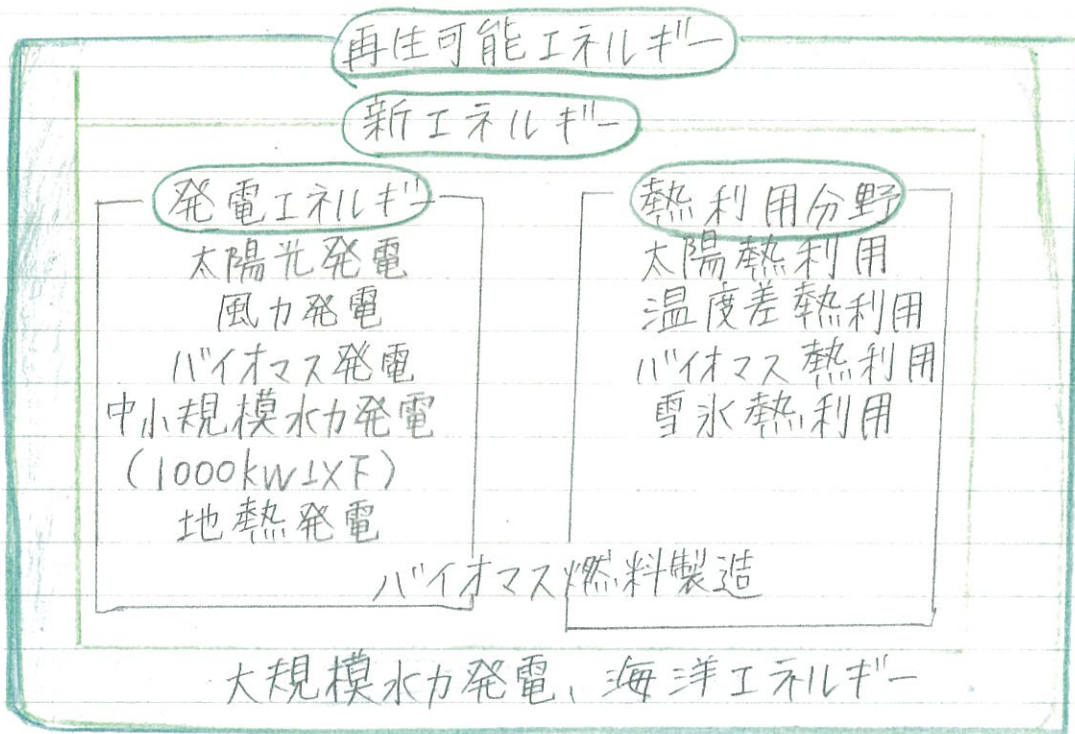 再生可能エネルギー
新エネルギー
発電エネルギー
太陽光発電
風力発電
バイオマス発電
中小規模水力発電
(1000kW以下)
地熱発電
熱利用分野
太陽熱利用
温度差熱利用
バイオマス熱利用
雪氷熱利用
バイオマス燃料製造
大規模水力発電、海洋エネルギー